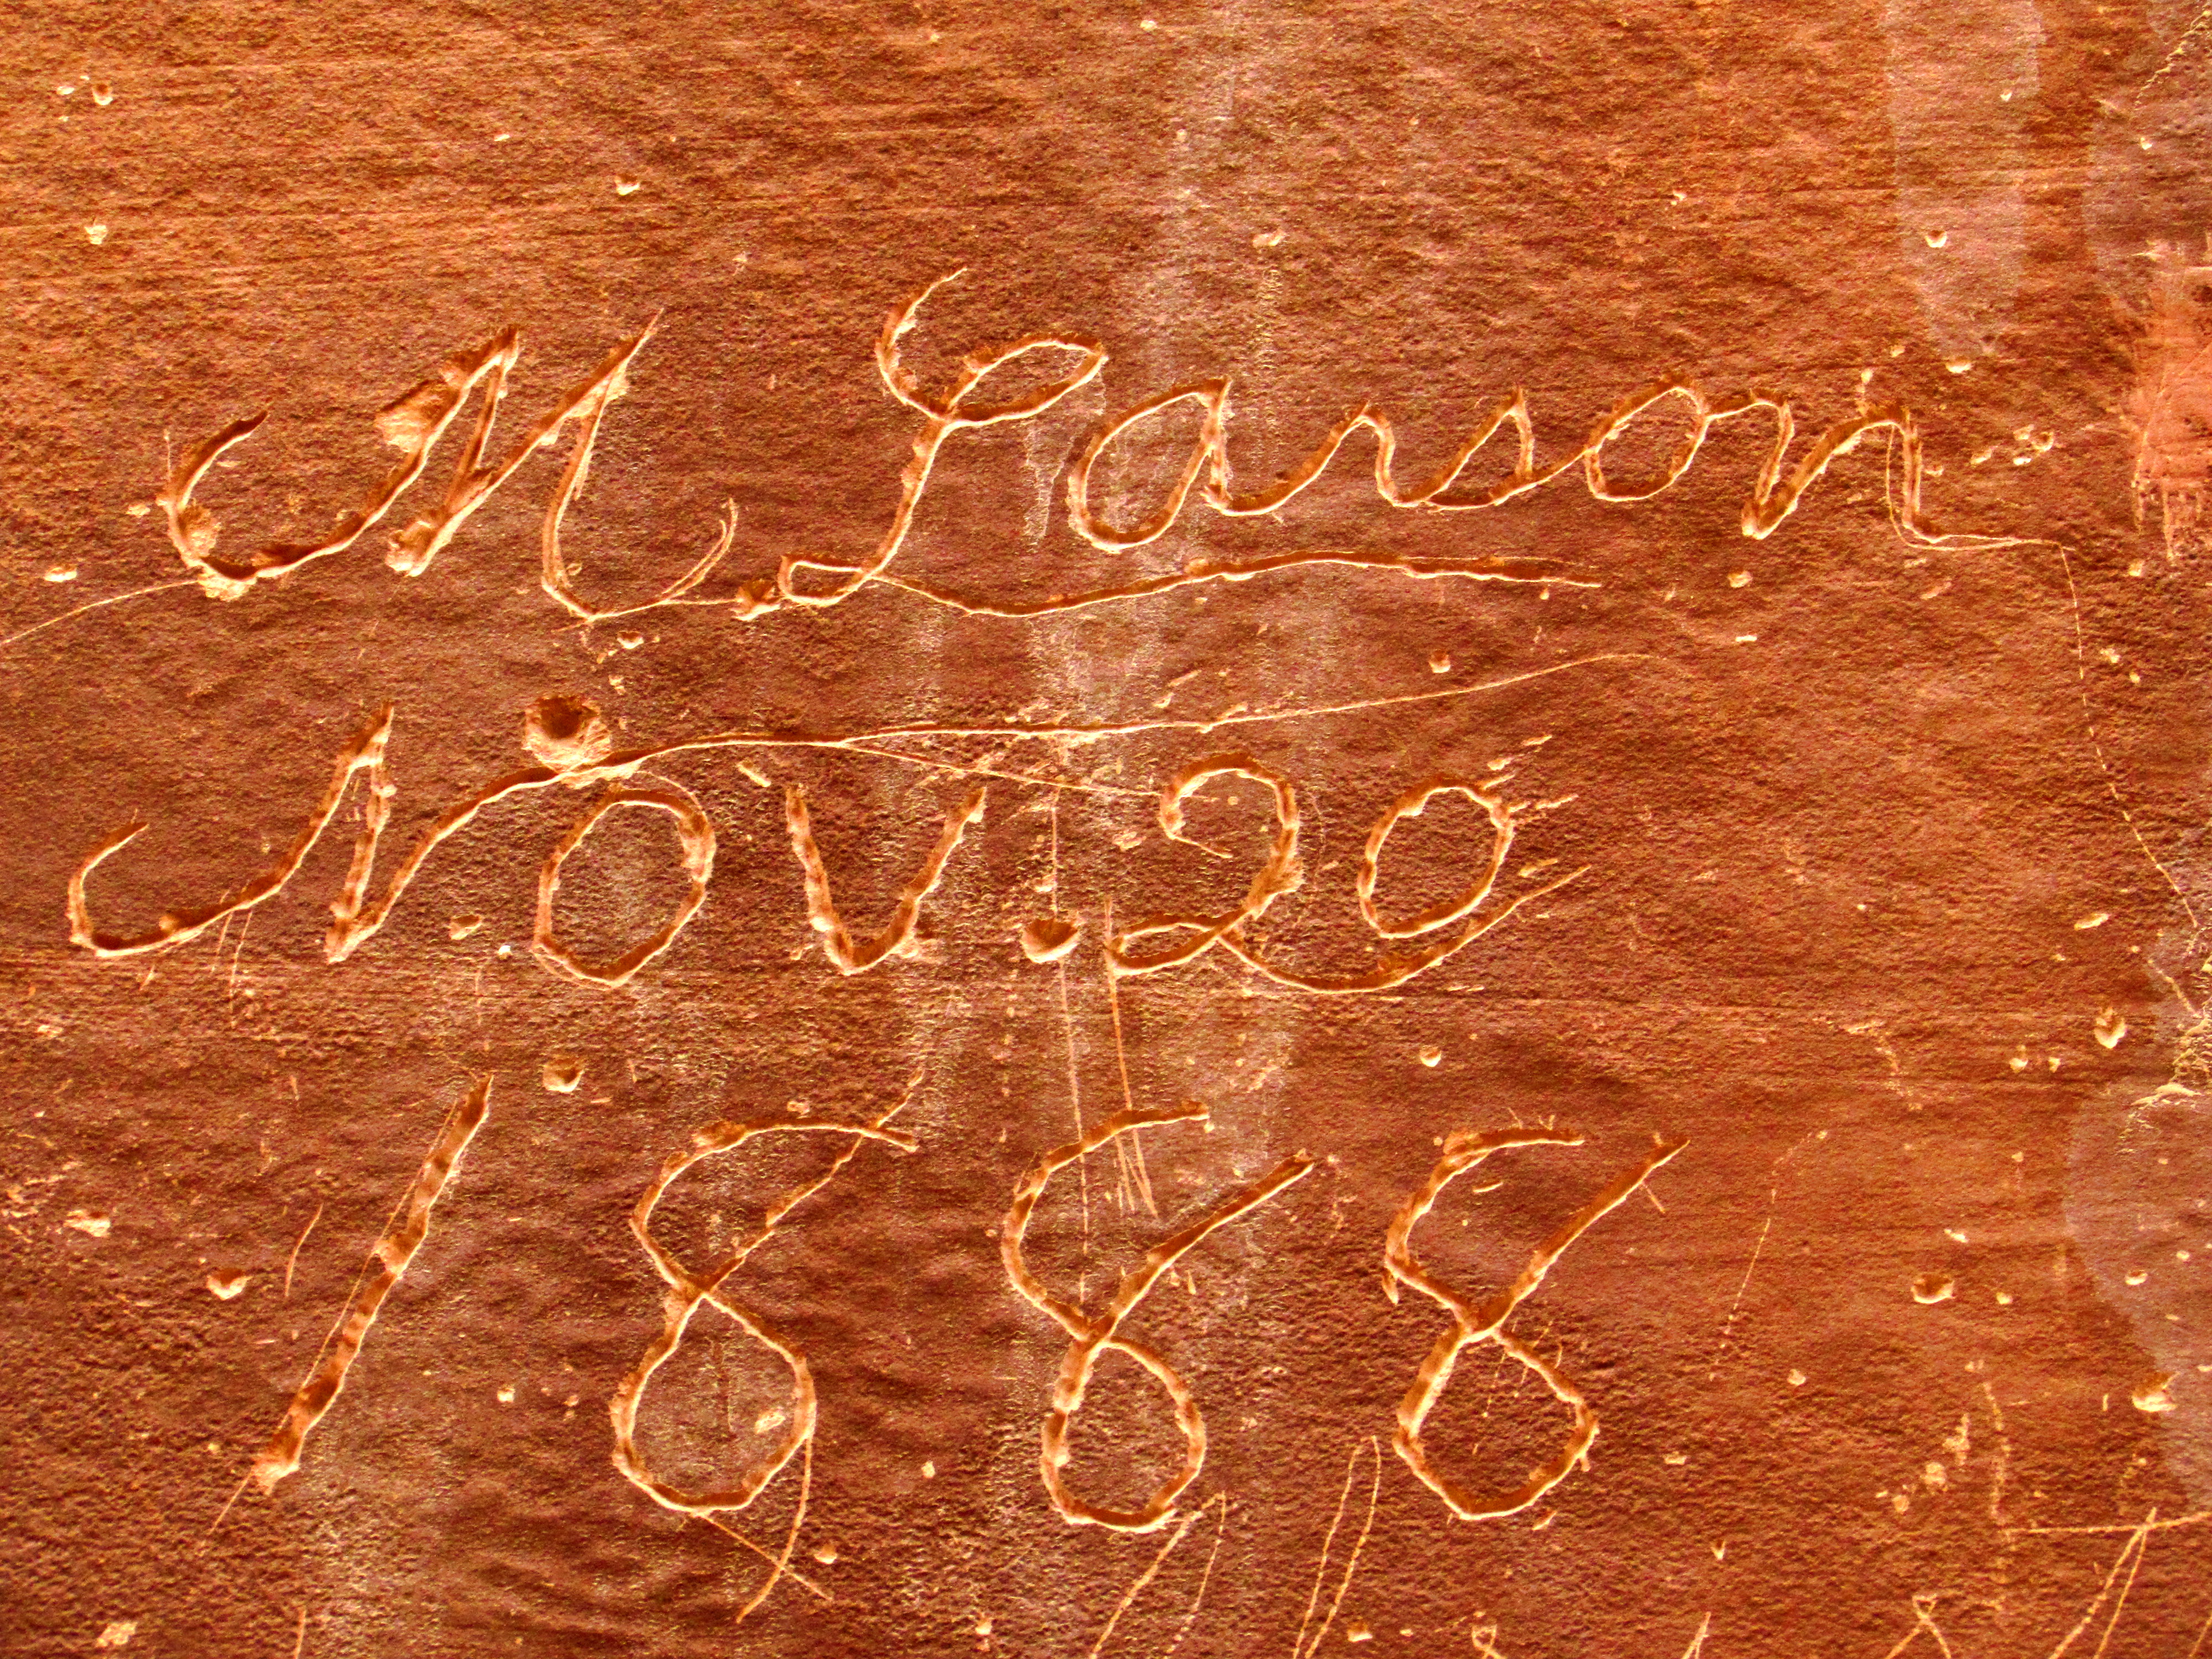 M. Larson
Nov. 20
1888